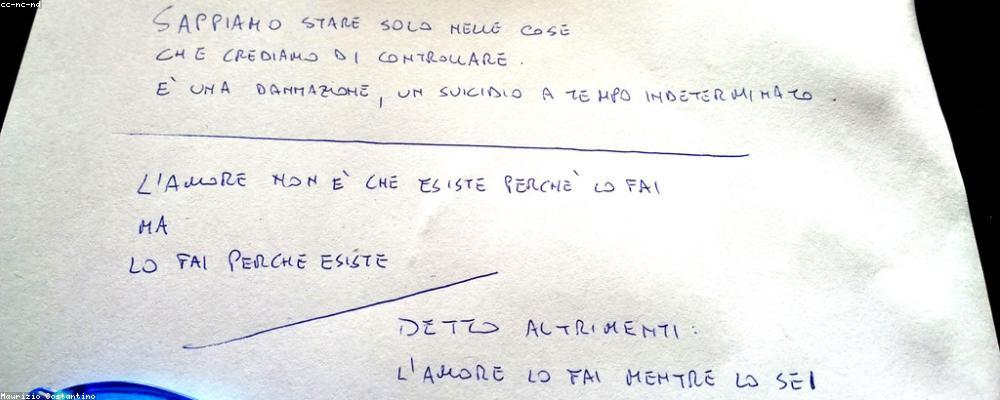 cc-nc-nd
SAPPIAMO STARE SOLO NELLE COSE
CHE CREDIAMO DI CONTROLLARE.
E' UNA DANNAZIONE, UN SUICIDIO A TEMPO INDETERMINATO.
L'AMORE NON È CHE ESISTE PERCHÈ LO FAI
MA
LO FAI PERCHE ESISTE
DETTO ALTRIMENTI:
L'AMORE LO FAI MENTRE LO SEI
Maurizio Costantino